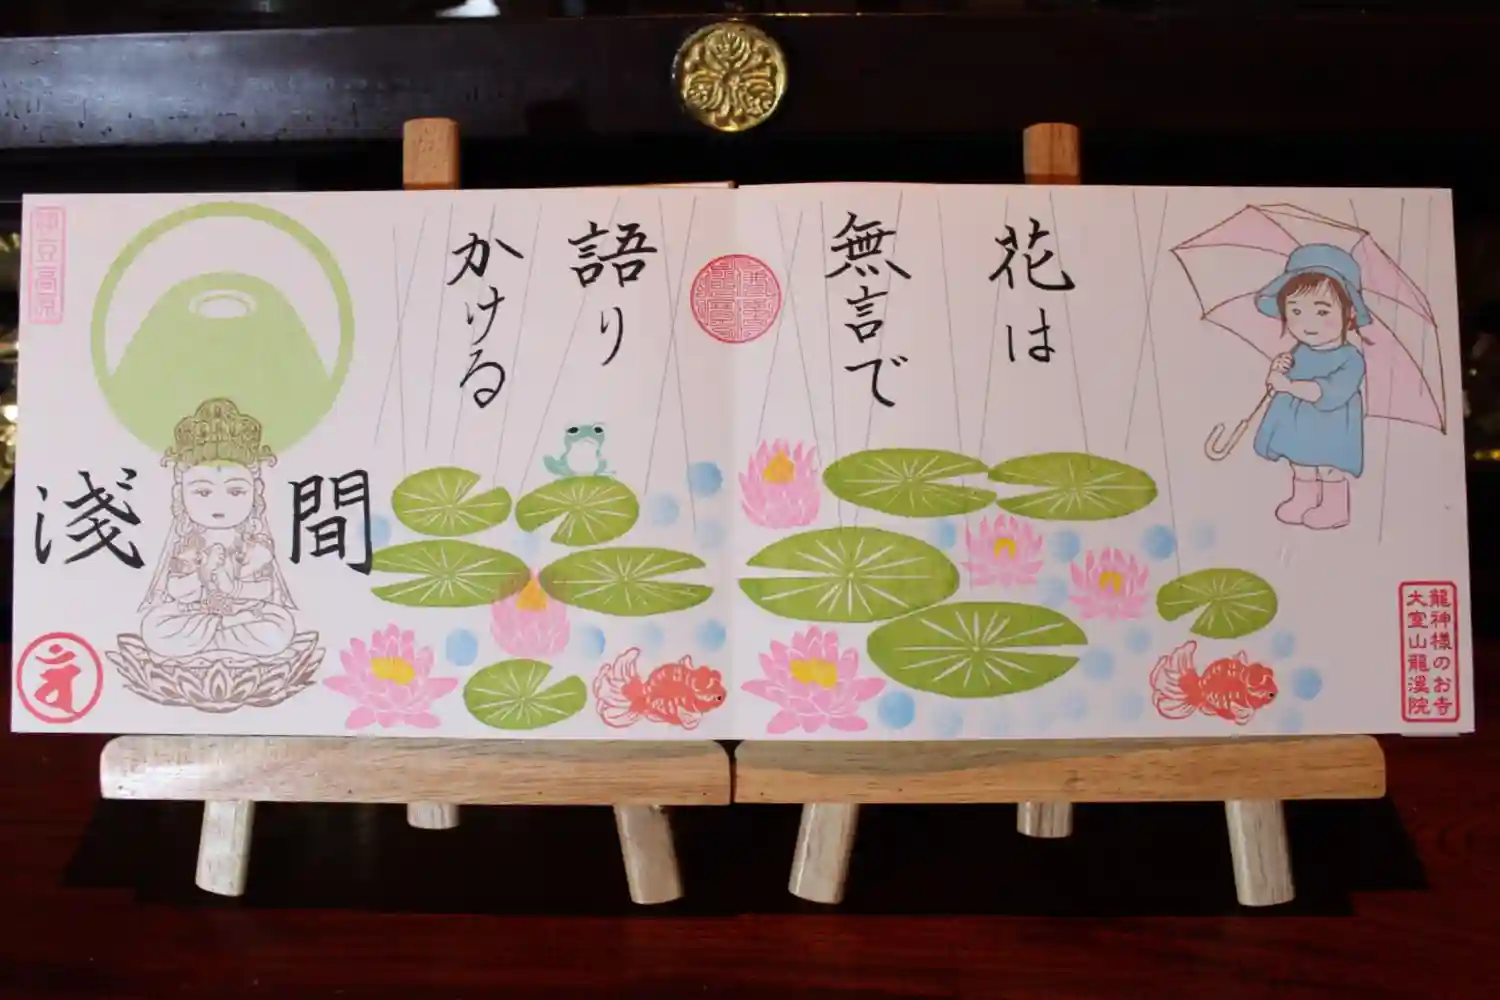 花は
無言で
語り
かける
浅間
伊豆高原
龍神様のお寺
大室山龍渓院